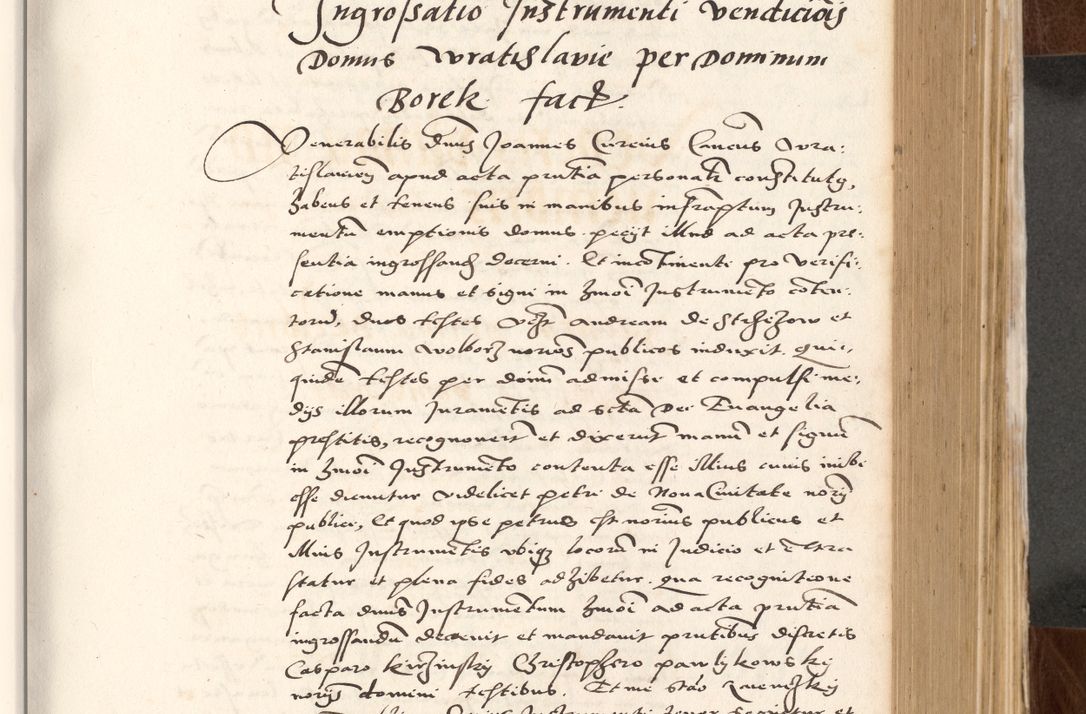 Ingrossatio Instrumenti vendicionis
Domus Wratislavie per Dominum
Borek fact.
Venerabilis dnus Joannes Cureus Cancus Wra:
tislavien apud acta pruntia personalr constitutus,
habens et tenens suis in manibus infrascriptum Instru:
mentu emptionis domus. peciit illud ad acta pre:
sentia ingrossand decerni. Et incotinenti pro verifi:
catione manus et signi in hmoi Instrumeto coten:
toru, duos testes vz Andream de Strzezow et
Stanislaum Wolborz norios publicos induxit. Qui:
quide testes per dnum admissi et compulsi me:
diis illorum Jurametis ad scta Dei Euangelia
prestitis, recognouert et dixerut manu et signu
in hmoi Instrumeto contenta esse illius cuius inibi
esse dicuntur videlicet petri de Noua Ciuitate norij
publici, Et quod ipse petrus est norius publicus et
illius Instrumetis vbiqz locoru in Judicio et extra
statur et plena fides adhibetur. qua recognitione
facta dnus Instrumentum hmoi ad acta pruntia
ingrossandu decreuit et mandauit pntibus discretis
Casparo kirzinsky Christophero pawlykowsky
norijs domini testibus. Et me Stao